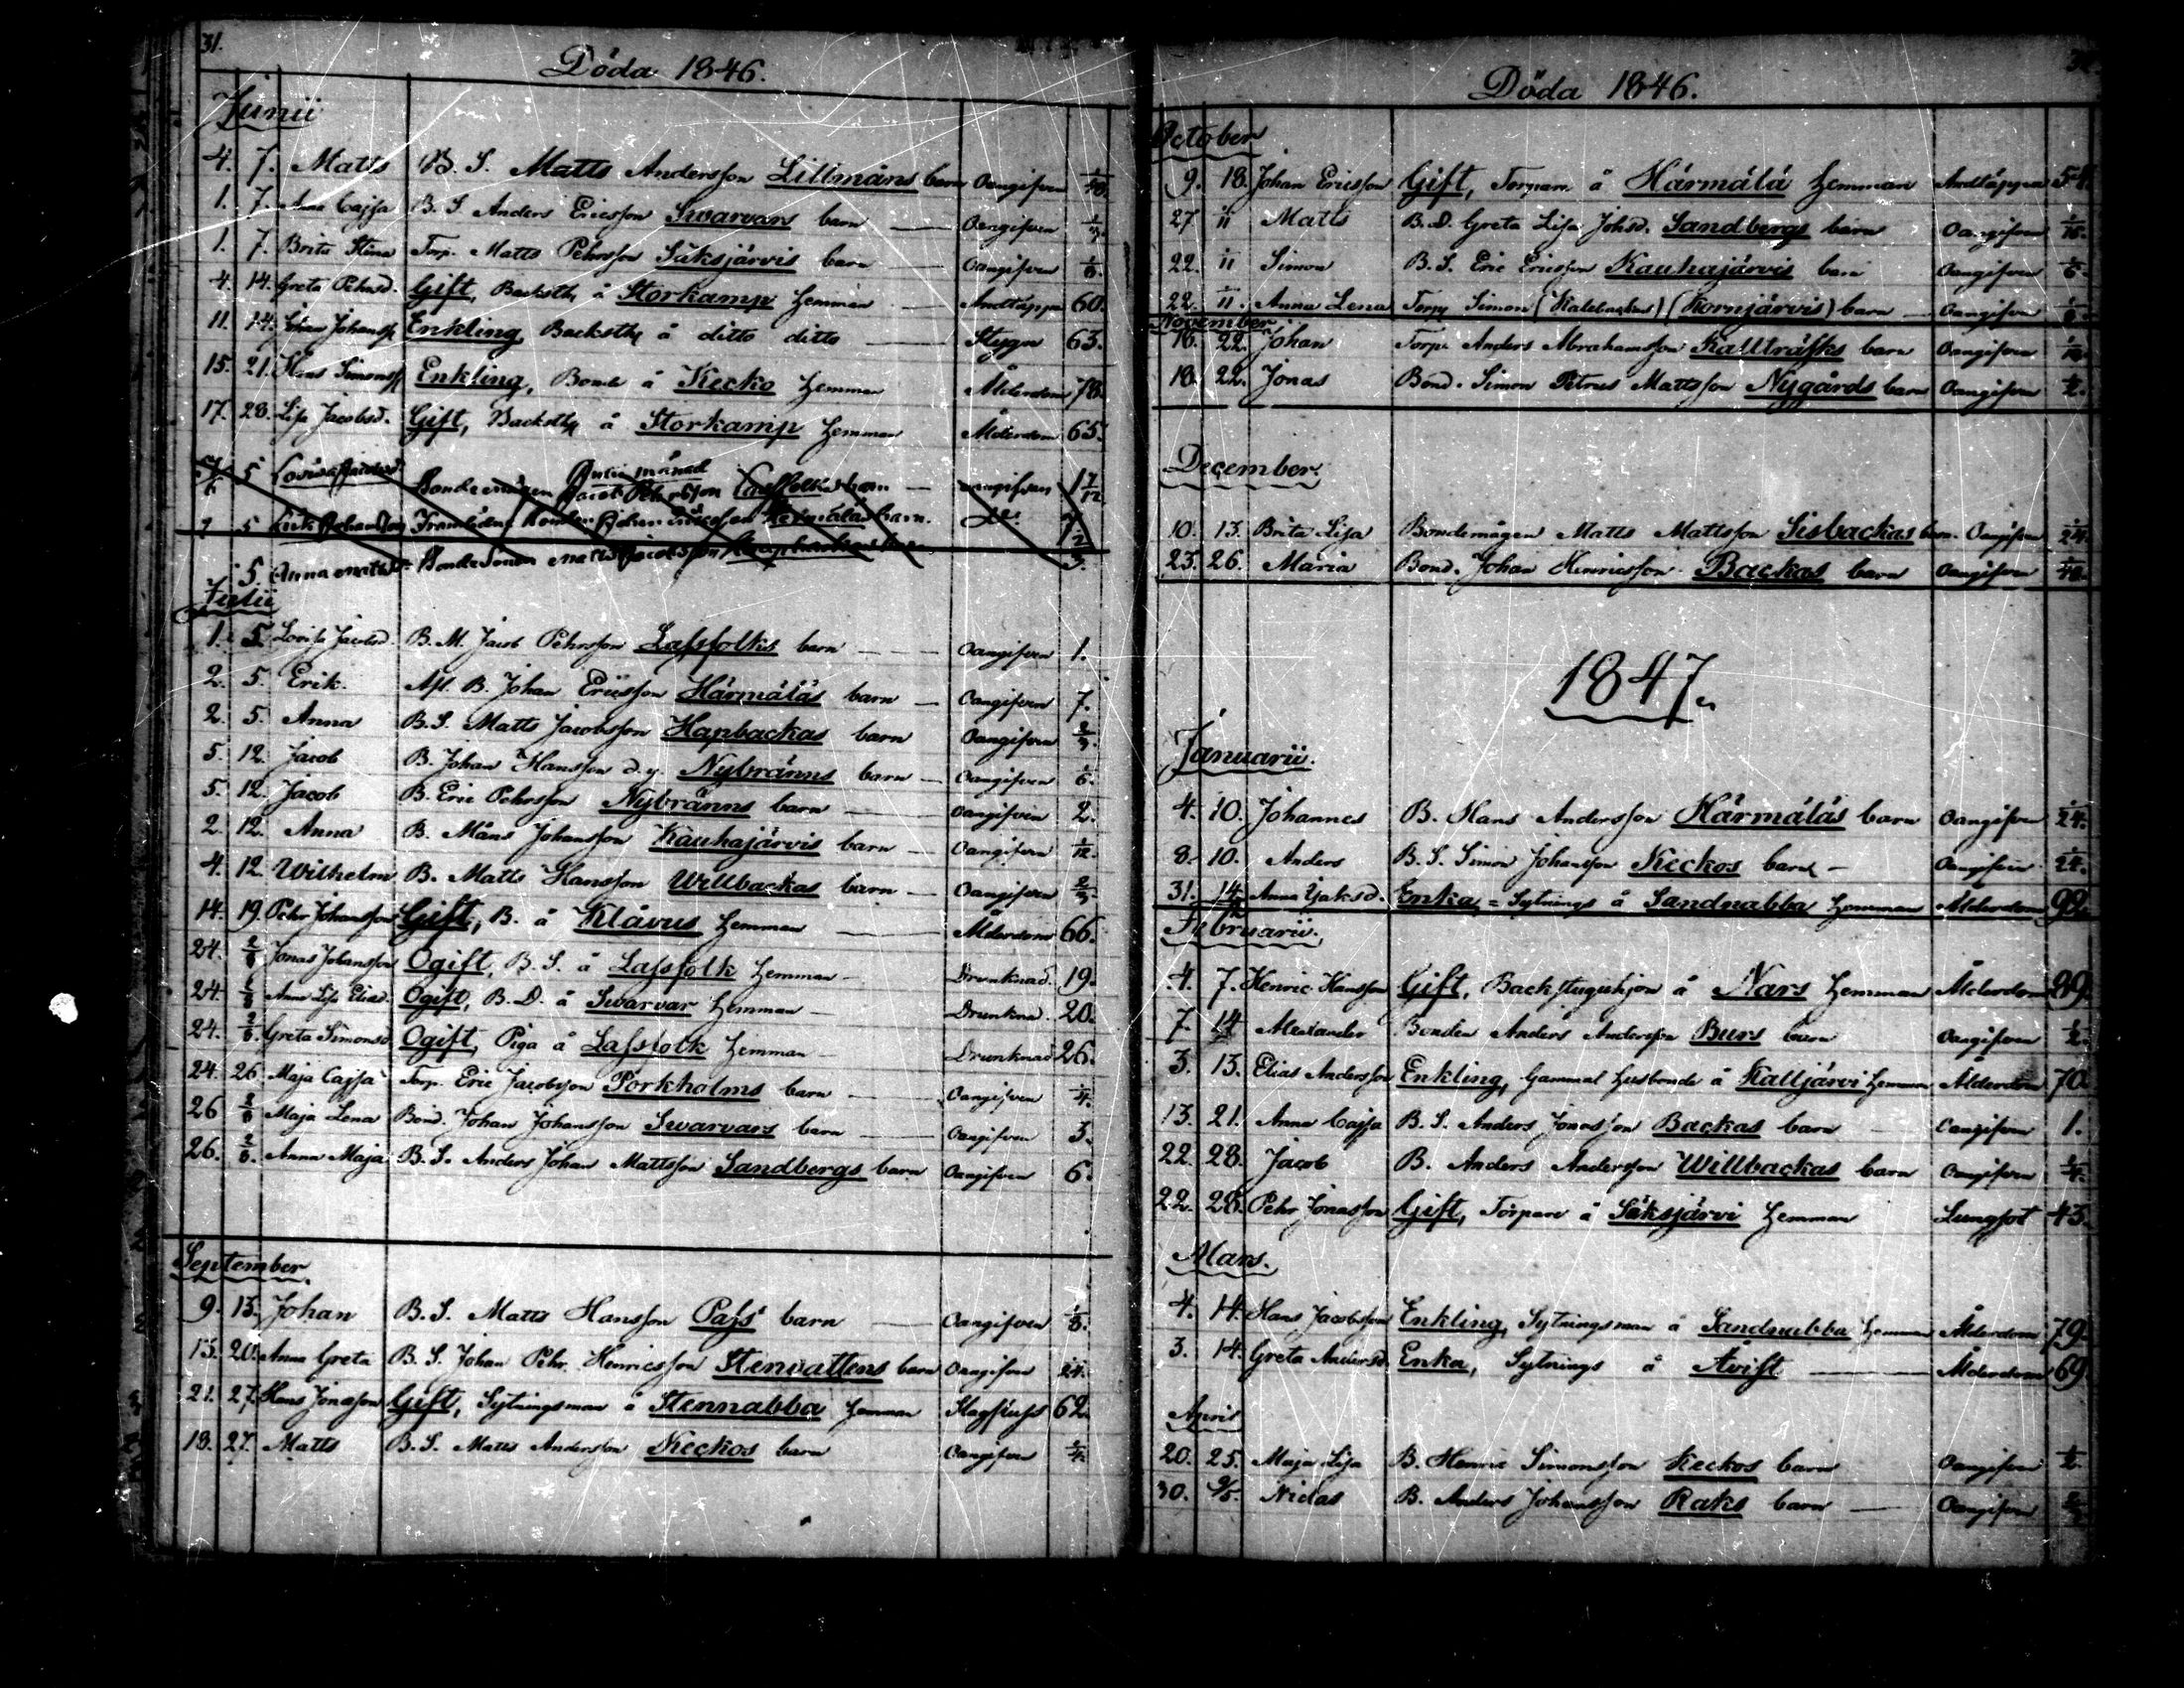 31.
Döda 1846.
Junii
4. 7. Matts B. S. Matts Andersson Lillmåns barn Oangifven
1. 7. Anna Cajsa B. S. Anders Ericsson Swarvars barn Oangifven
1. 7. Brita Stina Torp. Matts Pehrsson Säksjärvis barn Oangifven
4. 14. Greta Pehrsd. Gift, Backsth å Storkamp Hemman Andtäppa 60.
11. 14. Johan Johanss. Enkling, Backsth å ditto ditto Stygn 63.
15. 21. Hans Simonss Enkling, Bonde å Kecko Hemman Ålderdom 78.
17. 28. Lisa Jacobsd. Gift, Backsth å Storkamp Hemman Ålderdom 65.
5 Lovisa Jacobsd Bondemågen Jacob Pehrsson Lassfolks barn oangifven 1 7/12
5 Erik Johansson Framlidne Bonden Johan Ericsson Härmäläs barn. do 7
5. Anna Bonde Sonen Matts Jacobsson Hapbackas barn
Julii
1. 5. Lovisa Jacobsd. B. M. Jacob Pehrsson Lassfolks barn Oangifven 1.
2. 5. Erik. Afl. B. Johan Ericsson Härmäläs barn Oangifven 7.
2. 5. Anna B. S. Matts Jacobsson Hapbackas barn Oangifven
5. 12. Jacob B. Johan Hansson d.y. Nybränns barn Oangifven
5. 12. Jacob B. Eric Pehrsson Nybränns barn Oangifven 2.
2. 12. Anna B. Måns Johansson Kauhajärvis barn Oangifven 1/12.
4. 12. Wilhelm B. Matts Hansson Willbackas barn Oangifven
14. 19. Pehr Johansson Gift, B. å Klåvus Hemman Ålderdom 66.
24. 2/8 Jonas Johansson Ogift, B. S. å Lassfolk Hemman Drunknad. 19.
24. 2/8 Anna Lisa Eliasd. Ogift, B. D. å Swarvar Hemman Drunknad. 20.
24. 2/8. Greta Simonsd Ogift, Piga å Lassfolk Hemman Drunknad 26.
24. 26 Maja Cajsa Torp. Eric Jacobsson Porkholms barn Oangifven 1/4.
26 2/8 Maja Lena Bond. Johan Johansson Swarvars barn Oangifven 3.
26. 2/8. Anna Maja B. S. Anders Johan Mattsson Sandbergs barn Oangifven 6.
September
9. 13. Johan B. S. Matts Hansson Pass barn Oangifven
13. 20. Anna Greta B. S. Johan Pehr Henricsson Stenvattens barn Oangifven 1/24.
21. 27. Hans Jonasson Gift, Sytningsman å Stennabba Hemman Slagfluss 62.
18. 27. Matts B. S. Matts Andersson Keckos barn Oangifven
Döda 1846.
October
9. 18. Johan Ericsson Gift, Torpare å Härmälä Hemman Andtäppa
27 1/11 Matts B. D. Greta Lisa Johsd. Sandbergs barn Oangifven
22. 1/11 Simon B. S. Eric Ericsson Kauhajärvis barn Oangifven
22. 1/11. Anna Lena Torp Simon (Kornjärvis) barn Oangifven
November.
16. 22. Johan Torp. Anders Abrahamsson Kallträsks barn Oangifven
18. 22. Jonas Bond. Simon Petrus Mattsson Nygårds barn Oangifven 1/2.
December.
10. 13. Brita Lisa Bondemågen Matts Mattsson Sisbackas barn. Oangifven 1/24.
23. 26. Maria Bond. Johan Henricsson Backas barn Oangifven
1847.
Januarii.
4. 10. Johannes B. Hans Andersson Härmäläs barn Oangifven 1/24.
8. 10. Anders B. S. Simon Johansson Keckos barn Oangifven 1/24.
31. 14/2 Anna Isaksd. Enka, = Sytnings å Sandnabba Hemman Ålderdom
Februarii.
4. 7. Henric Hansson Gift, Backstuguhjon å Nars Hemman Ålderdom 89.
7. 14 Alexander Bonden Anders Andersson Burs barn Oangifven 1/2.
3. 13. Elias Andersson Enkling, Gammal husbonde å Kalljärvi Hemman Ålderdom 70.
13. 21. Anna Cajsa B. S. Anders Jonasson Backas barn Oangifven 1.
22. 28. Jacob B. Anders Andersson Willbackas barn Oangifven
22. 28. Pehr Jonasson Gift, Torpare å Säksjärvi Hemman Lungsot 43.
Mars.
4. 14. Hans Jacobsson Enkling, Sytningsman å Sandnabba Hemman Ålderdom 79.
3. 14. Greta Andersd. Enka, Sytnings å Åvist Ålderdom 69.
April
20. 25. Maja Lisa B. Henric Simonsson Keckos barn Oangifven 1/2.
30. 9/5. Niclas B. Anders Johansson Raks barn Oangifven